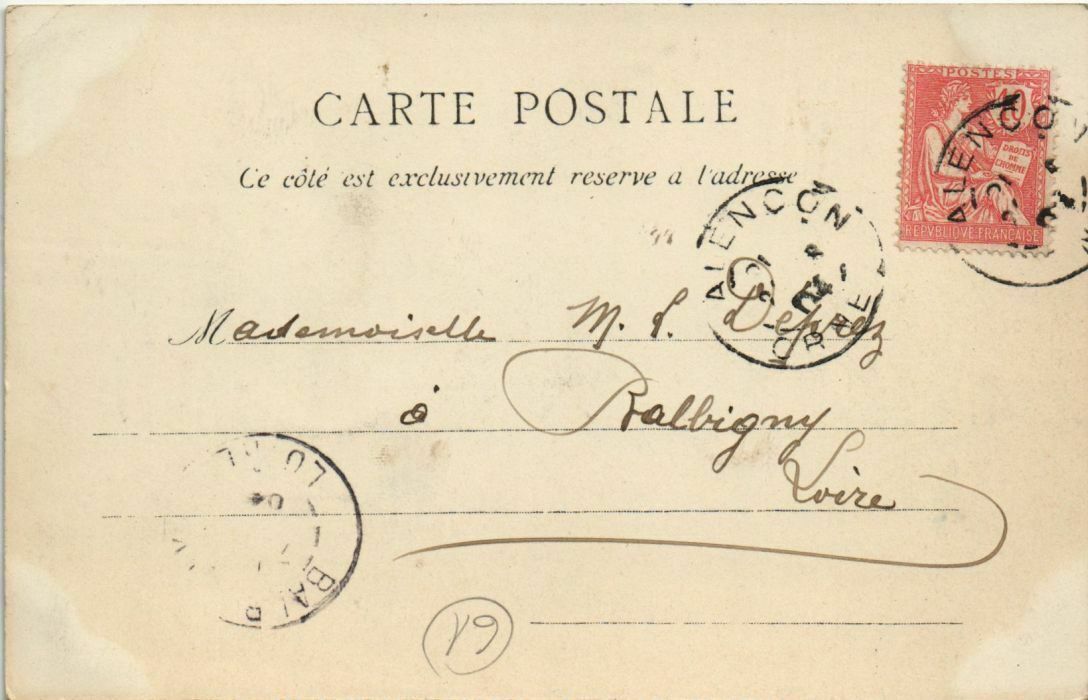 CARTE POSTALE
Ce côté est exclusivement reserve a l'adresse
POSTES
10
DROITS
DE
L'HOMME
REPVBLIQVE FRANÇAISE
ALENCON
ALENCON
ORNE
Mademoiselle M. L. Deprez
à Balbigny
Loire
LOIRE
BALB
04